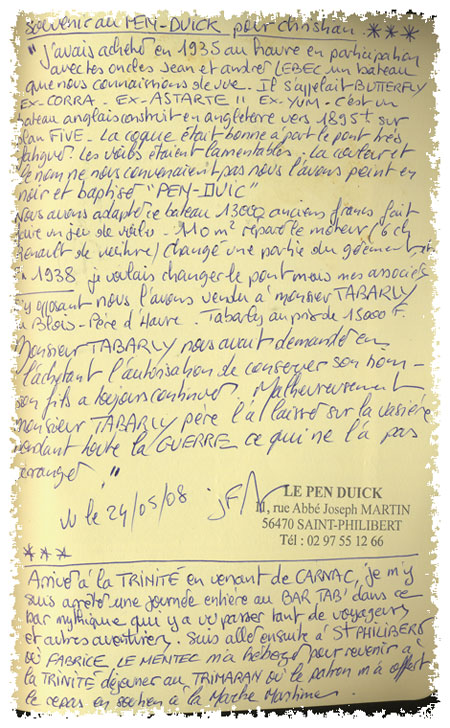 souvenir au PEN-DUICK pour christian ***
"J'avais acheté en 1935 au havre en participation
avec tes oncles Jean et andré LEBEC un bateau
que nous connaissions de vue. Il s'appelait BUTTERFLY
EX-CORRA - EX-ASTARTE II EX-YUM - C'est un
bateau anglais construit en angleterre vers 1895 sur
plan FIVE - La coque était bonne à part le pont très
fatigué. Les voiles étaient lamentables. La couleur et
le nom ne nous convenaient pas nous l'avons peint en
noir et baptisé "PEN-DUIC"
Nous avons ce bateau 13000 anciens francs fait
faire un jeu de voiles - 110 m² réparé le moteur (6 ch
Renault de voiture) changé une partie du gréement
en 1938 je voulais changer le pont mais mes associés
s'y opposant nous l'avons vendu à monsieur TABARLY
à Blois - Père d'Tabarly au prix de 15000 F.
Monsieur TABARLY nous avait demandé en
l'achetant l'autorisation de conserver son nom -
son fils a toujours continué. Malheureusement
monsieur TABARLY père l'a laissé sur la vasière
pendant toute la GUERRE ce qui ne l'a pas
arrangé "
vu le 24/05/08
LE PEN DUICK
11, rue Abbé Joseph MARTIN
56470 SAINT-PHILIBERT
Tél : 02 97 55 12 66
***
Arrivé à la TRINITÉ en venant de CARNAC, je m'y
suis arrêté une journée entière au BAR TAB' dans ce
bar mythique qui y a vu passer tant de voyageurs
et autres aventuriers. Suis allé ensuite à St PHILIBERT
où FABRICE LE MENTEC m'a hébergé pour revenir à
la TRINITÉ déjeuner au TRIMARAN où le patron m'a offert
le repas en soutien à la Marche Maritime.